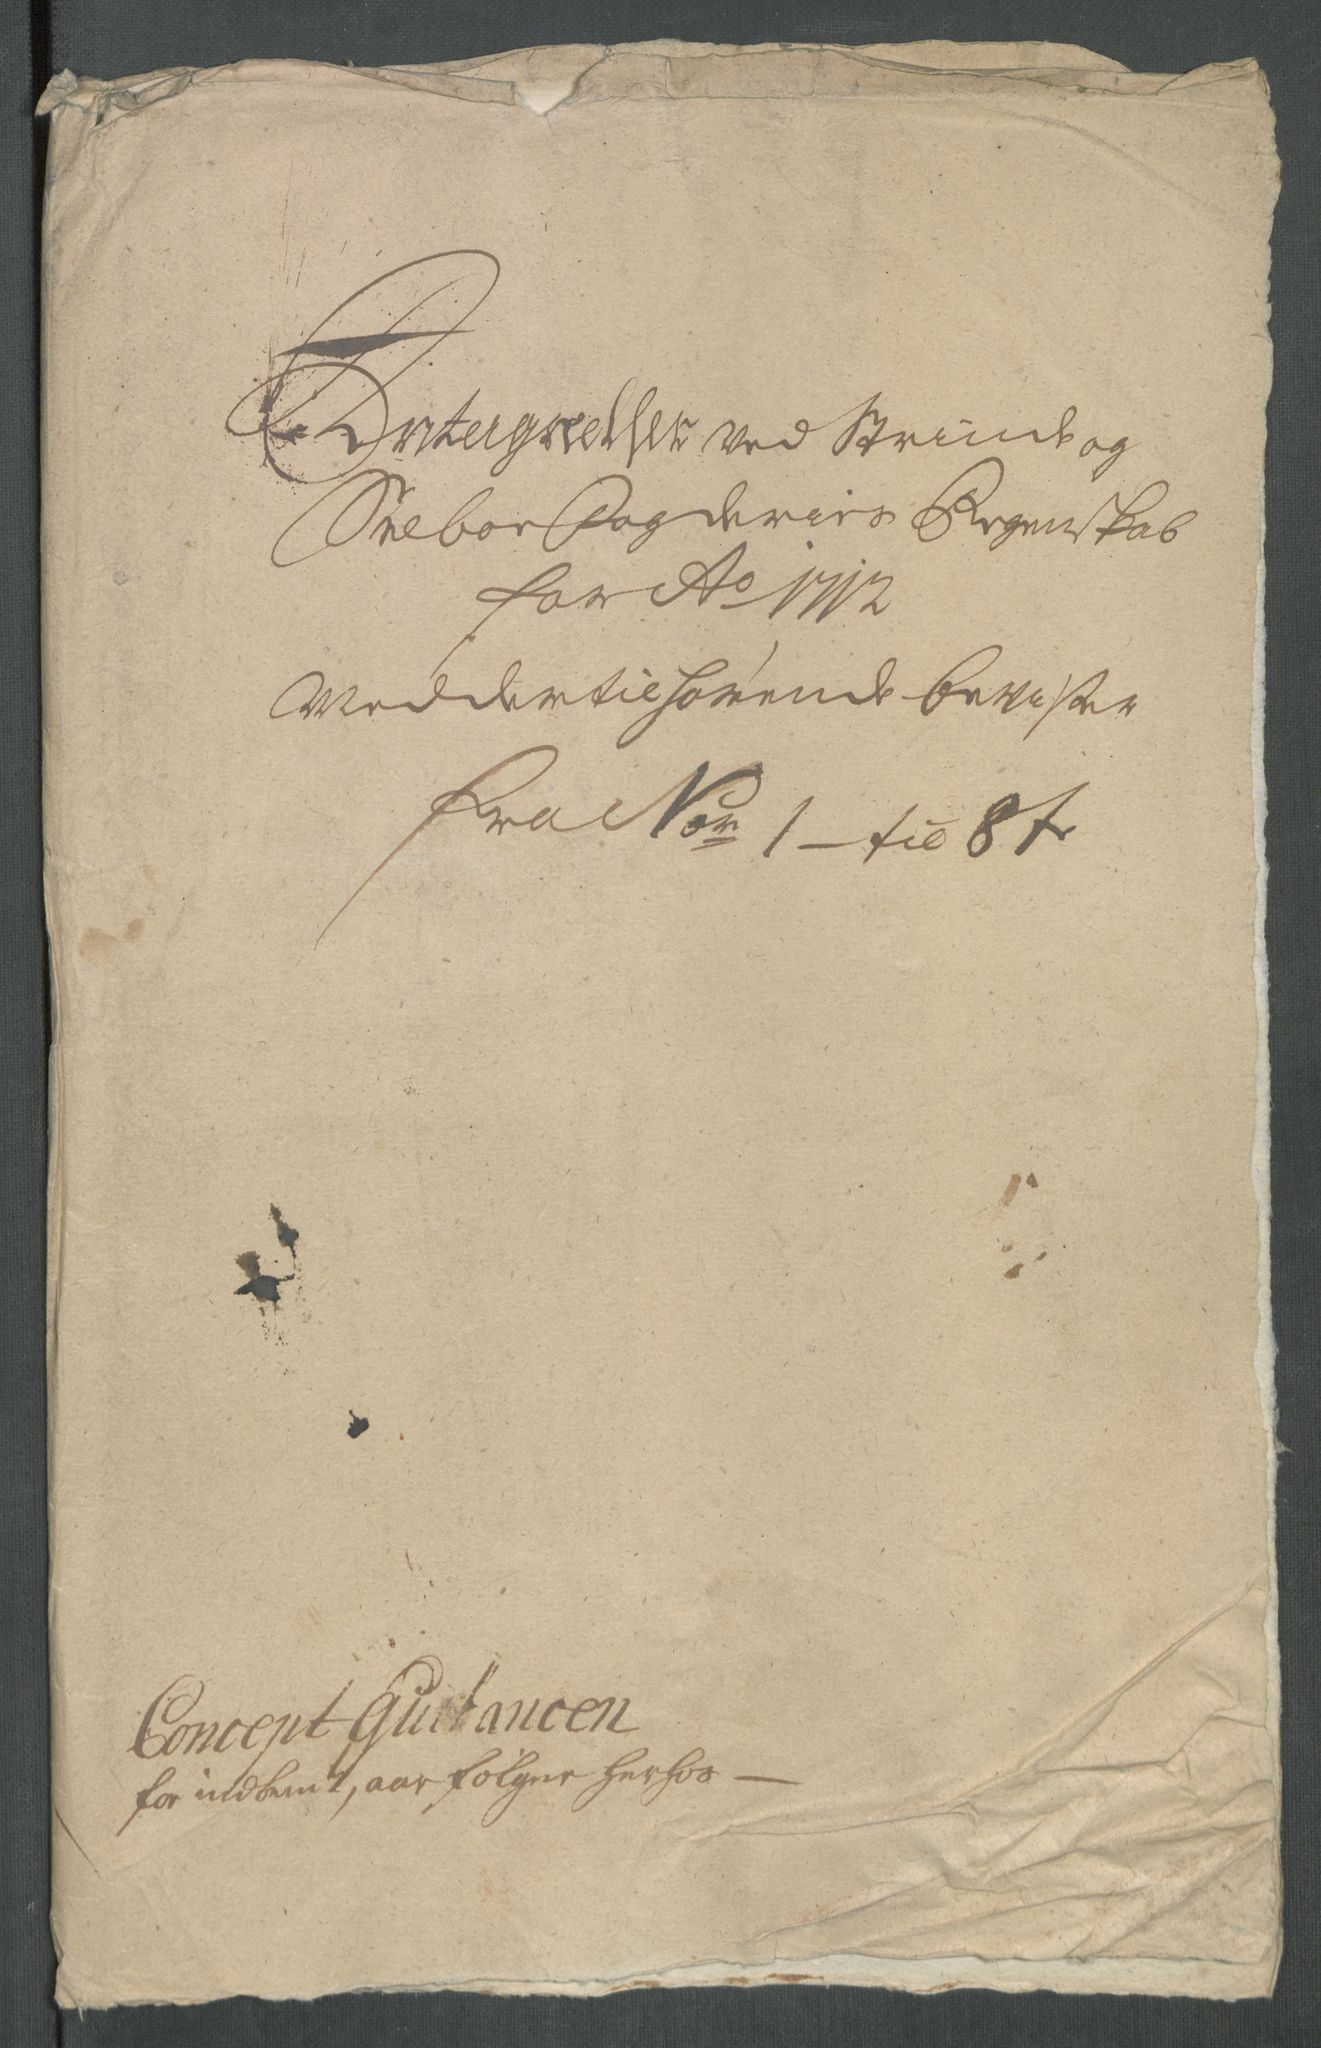 Antegnelser ved Strinde og
Selboe Fogderies Regenskab
for Ao 1712
Med dertil hørende beviser
fra Nor 1 — til 8 
Concept Quitancen
for indbemt, aar følger herhos —